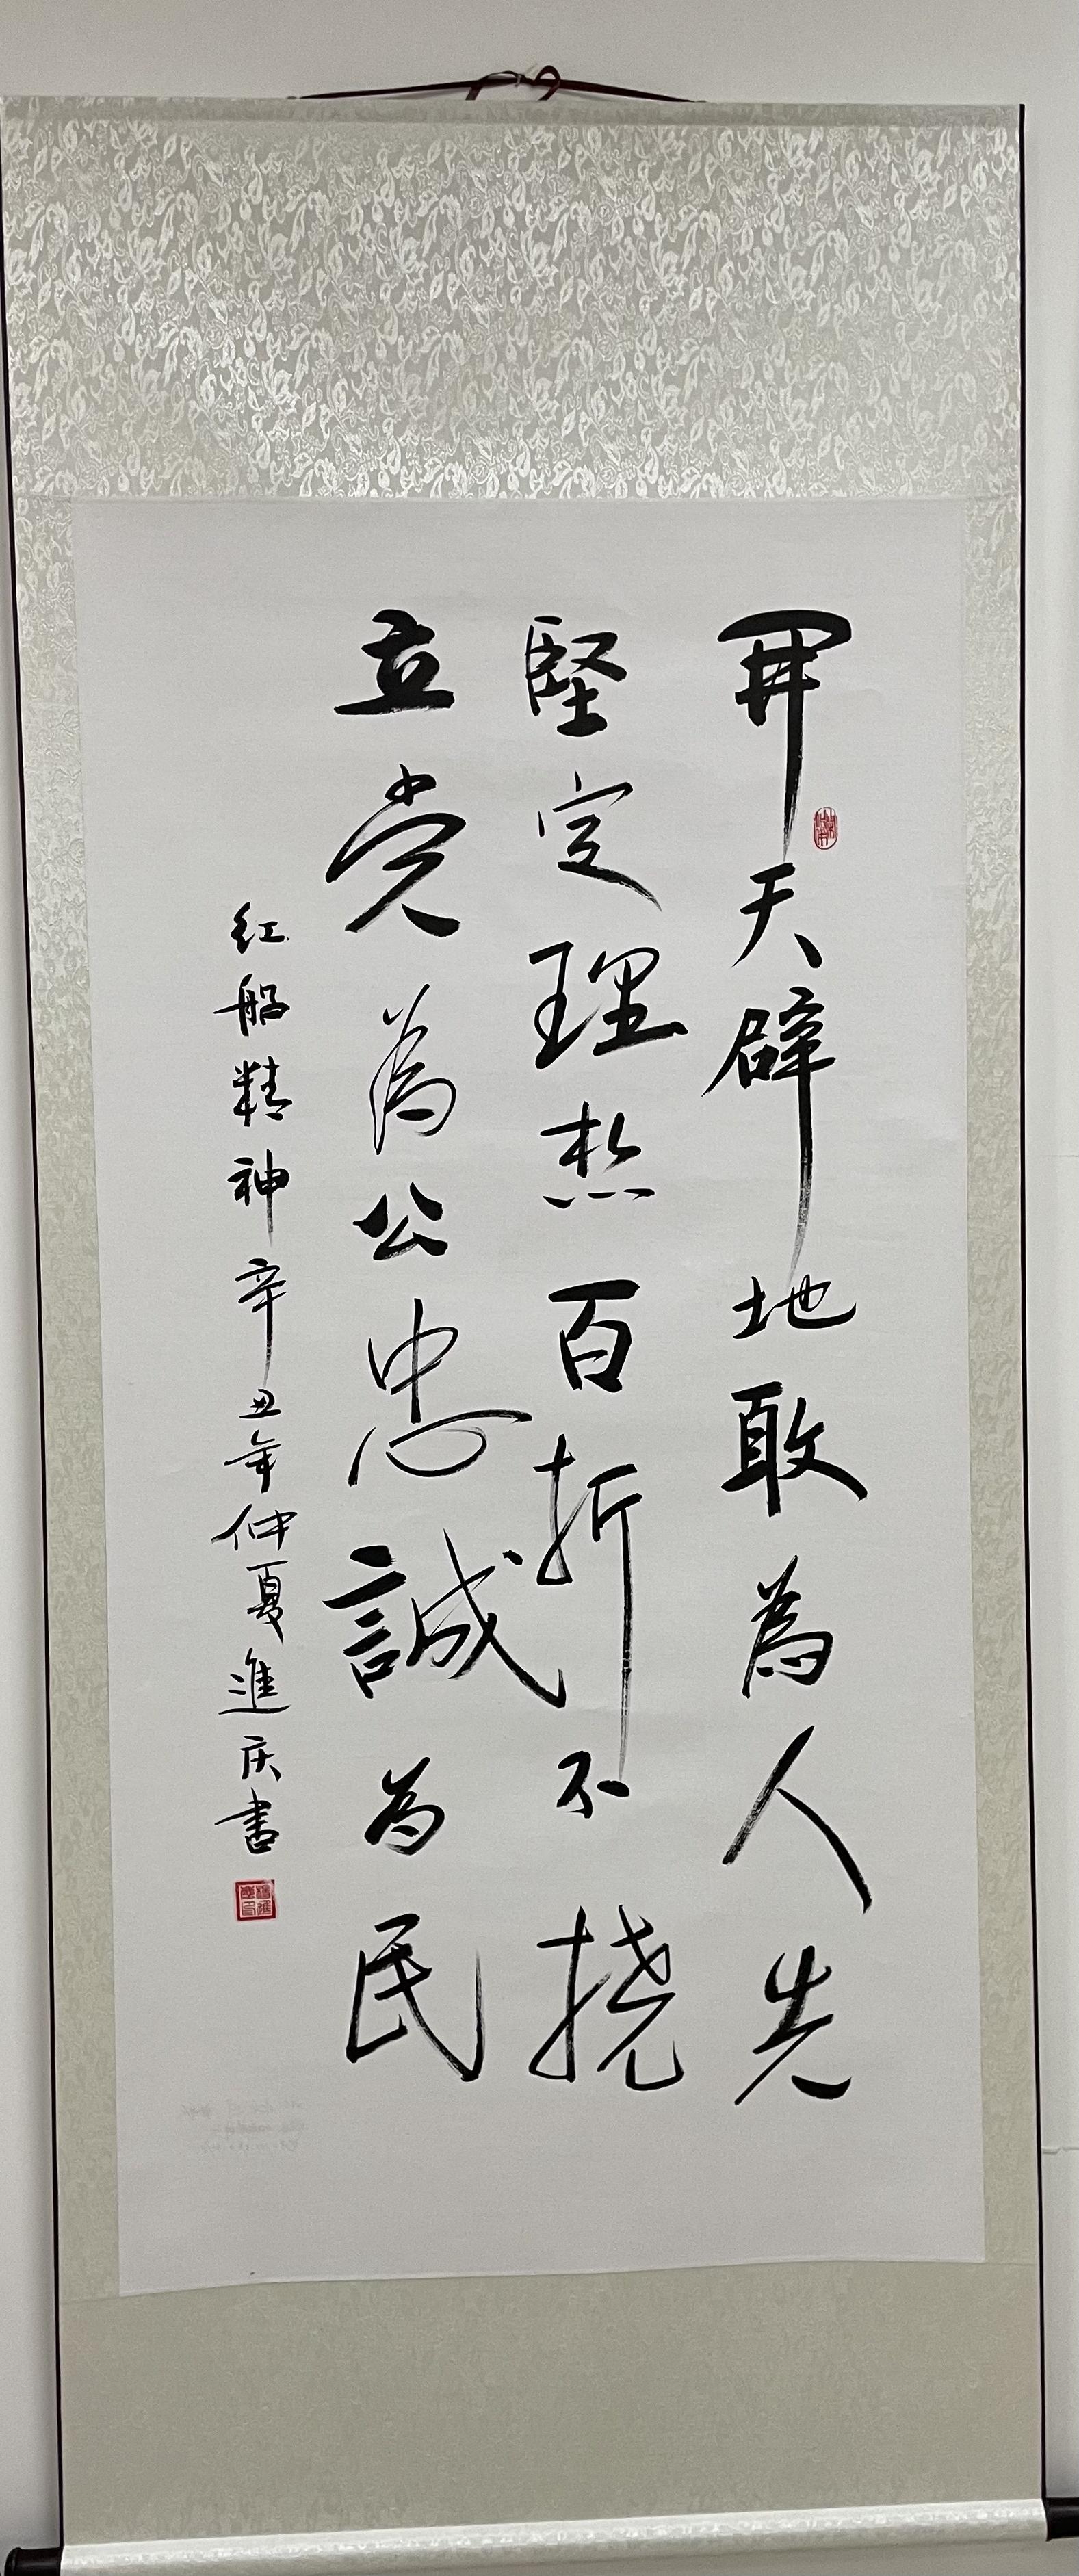 開天辟地敢為人先
堅定理想百折不撓
立党為公忠誠為民
红船精神辛丑年仲夏進庆書